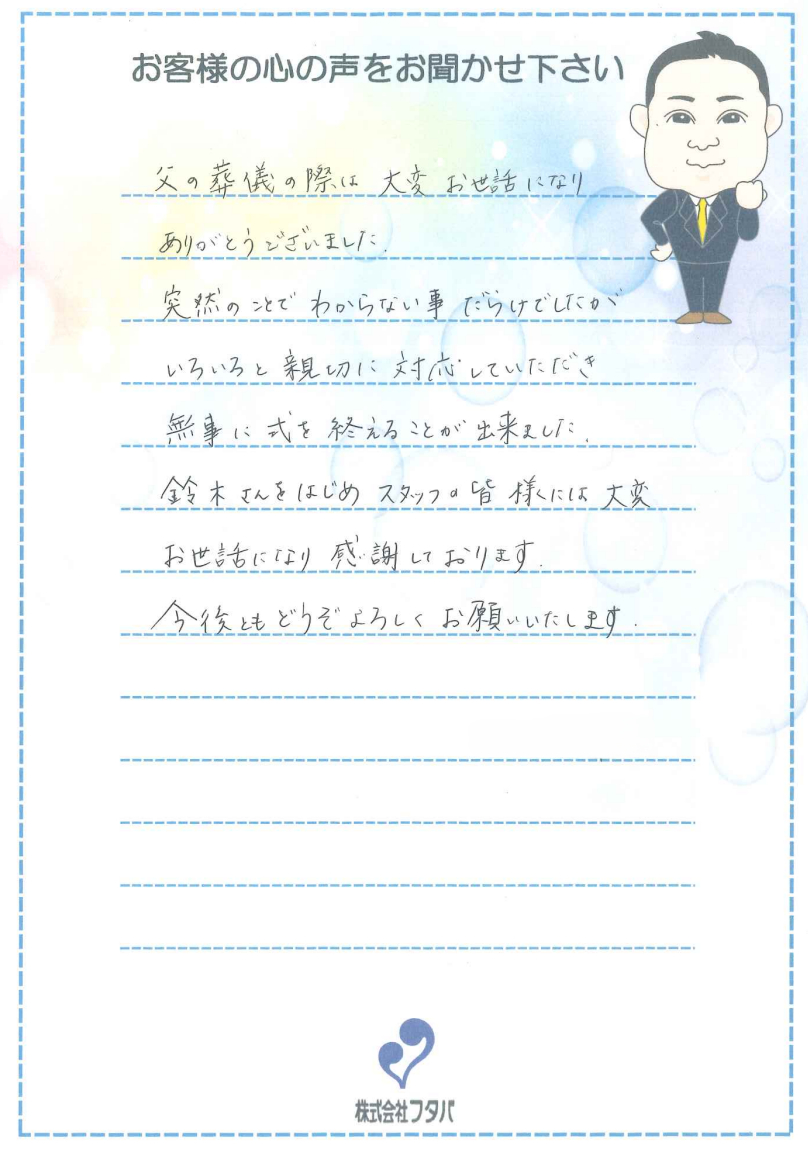 お客様の心の声をお聞かせ下さい
父の葬儀の際は 大変 お世話になり
ありがとうございました.
突然のことで わからない事 だらけでしたが
いろいろと 親切に 対応していただき
無事に 式を 終えることが 出来ました.
鈴木さんをはじめ スタッフの皆様には 大変
お世話になり 感謝しております.
今後ともどうぞよろしく お願いいたします.
株式会社フタバ